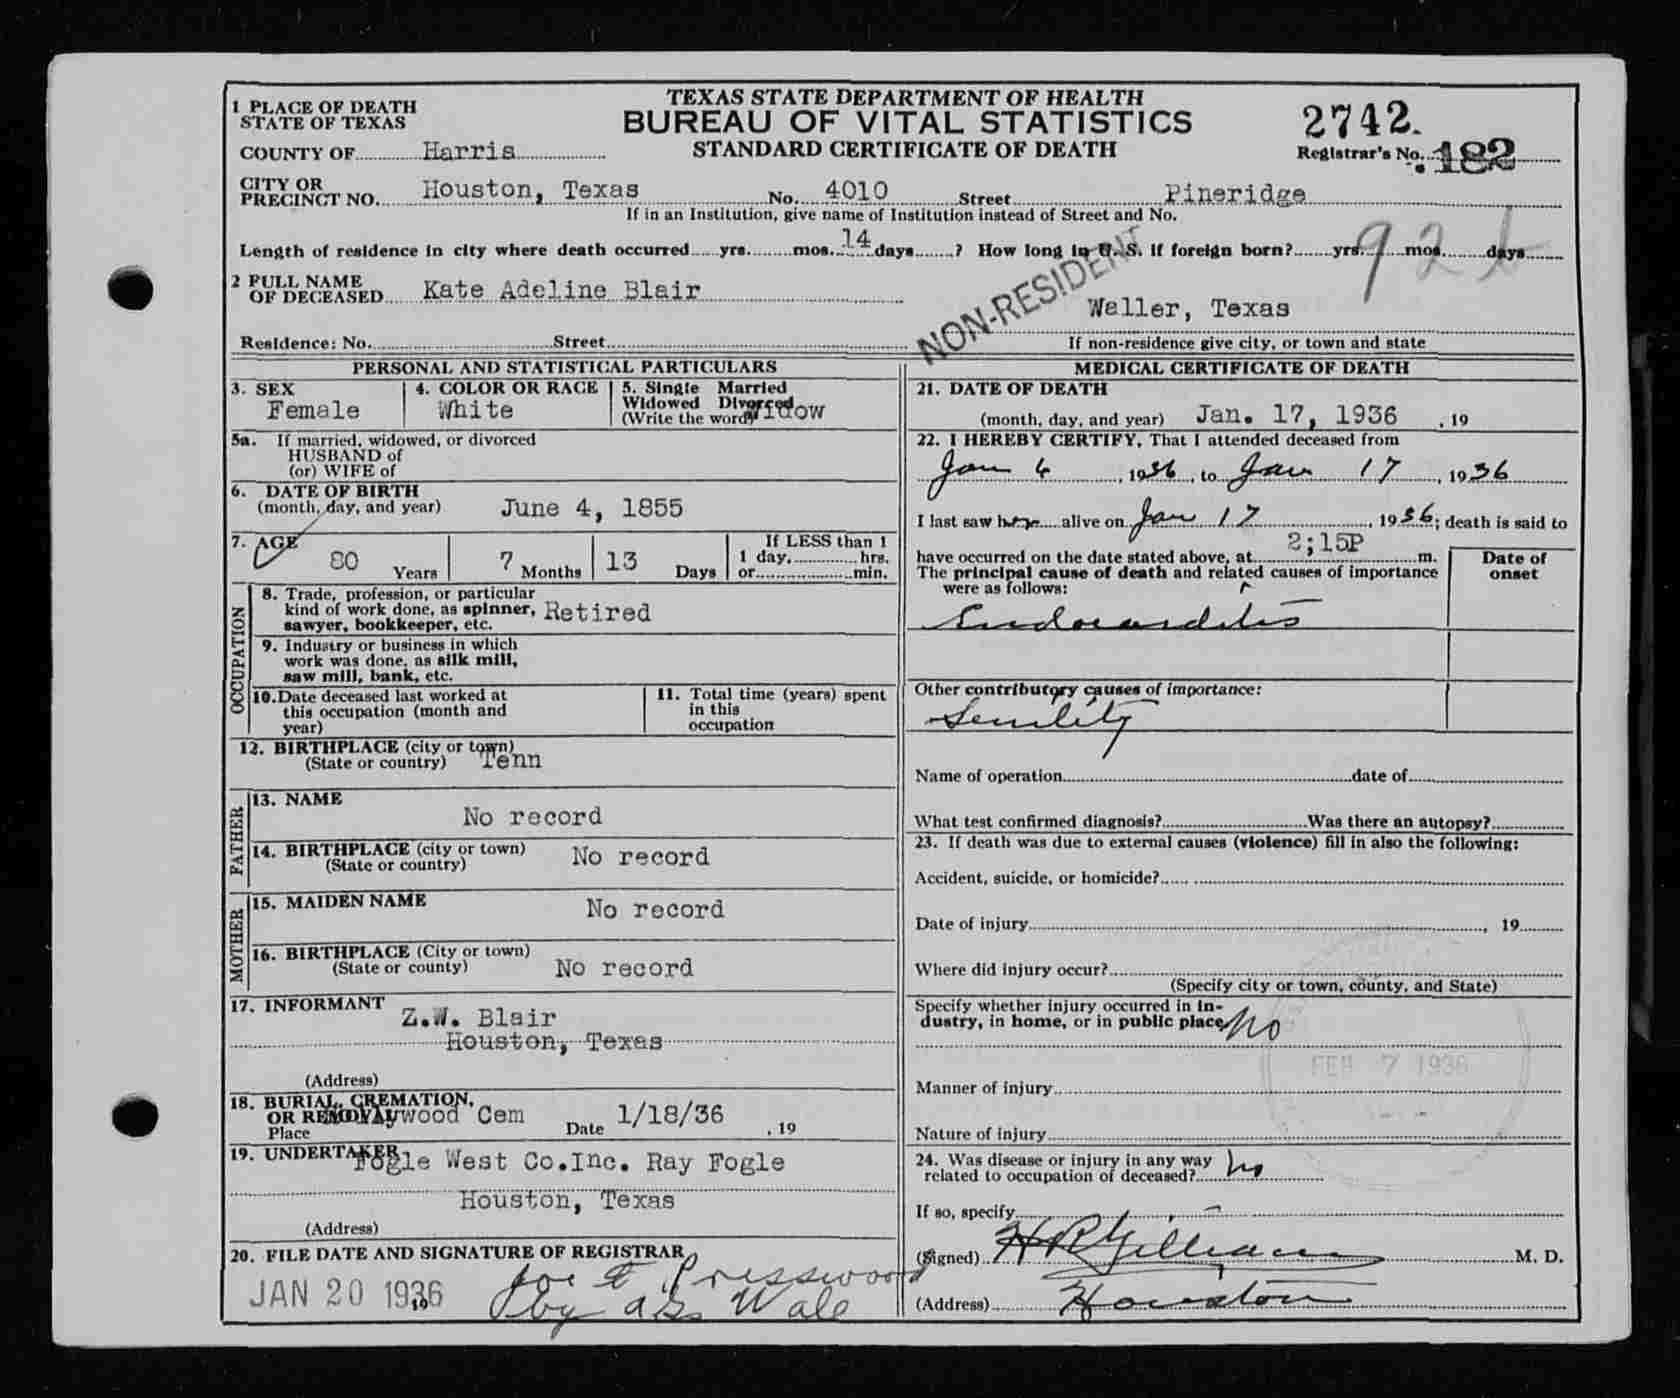 TEXAS STATE DEPARTMENT OF HEALTH
BUREAU OF VITAL STATISTICS
STANDARD CERTIFICATE OF DEATH
2742.
Registrar's No. 182
1 PLACE OF DEATH
STATE OF TEXAS
COUNTY OF Harris
CITY OR
PRECINCT NO. Houston, Texas No. 4010 Street Pineridge
If in an Institution, give name of Institution instead of Street and No.
Length of residence in city where death occurred yrs. mos. 14 days ? How long in U. S. if foreign born? yrs. mos. days
92
2 FULL NAME
OF DECEASED Kate Adeline Blair
NON-RESIDENT
Waller, Texas
Residence: No. Street
If non-residence give city, or town and state
PERSONAL AND STATISTICAL PARTICULARS
3. SEX
Female
4. COLOR OR RACE
White
5. Single Married
Widowed Divorced
(Write the word) Widow
5a. If married, widowed, or divorced
HUSBAND of
(or) WIFE of
6. DATE OF BIRTH
(month, day, and year) June 4, 1855
7. AGE
80 Years 7 Months 13 Days
If LESS than 1
1 day, hrs.
or min.
OCCUPATION
8. Trade, profession, or particular
kind of work done, as spinner, Retired
sawyer, bookkeeper, etc.
9. Industry or business in which
work was done, as silk mill,
saw mill, bank, etc.
10. Date deceased last worked at
this occupation (month and
year)
11. Total time (years) spent
in this
occupation
12. BIRTHPLACE (city or town)
(State or country) Tenn
FATHER
13. NAME
No record
14. BIRTHPLACE (city or town) No record
(State or country)
MOTHER
15. MAIDEN NAME
No record
16. BIRTHPLACE (City or town)
(State or county) No record
17. INFORMANT
Z.W. Blair
Houston, Texas
(Address)
18. BURIAL, CREMATION,
OR REMOVAL
Place Hollywood Cem Date 1/18/36 , 19
19. UNDERTAKER
Fogle West Co.Inc. Ray Fogle
Houston, Texas
(Address)
20. FILE DATE AND SIGNATURE OF REGISTRAR
JAN 20 1936 19
Joe E Presswood
by
MEDICAL CERTIFICATE OF DEATH
21. DATE OF DEATH
(month, day, and year) Jan. 17, 1936 , 19
22. I HEREBY CERTIFY, That I attended deceased from
Jan 4 , 1936, to Jan 17 , 1936
I last saw her alive on Jan 17 , 1936; death is said to
have occurred on the date stated above, at 2;15P m.
The principal cause of death and related causes of importance
were as follows:
Date of
onset
Endocarditis
Other contributory causes of importance:
Senility
Name of operation date of
What test confirmed diagnosis? Was there an autopsy?
23. If death was due to external causes (violence) fill in also the following:
Accident, suicide, or homicide?
Date of injury , 19
Where did injury occur?
(Specify city or town, county, and State)
Specify whether injury occurred in in-
dustry, in home, or in public place. No
FEB 7 1936
Manner of injury
Nature of injury
24. Was disease or injury in any way
related to occupation of deceased? No
If so, specify
(Signed) H R Gilliam M. D.
(Address) Houston